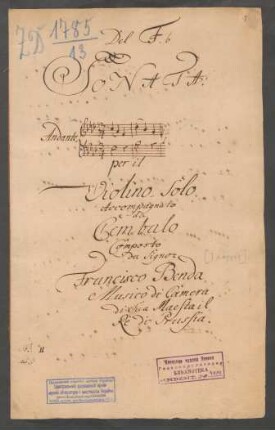 ZD 1785
13
Del F. b
SONATA.
Andante
per il
Violino Solo
accompagnato
da
Cembalo
Composto
Da Signor
Francisco Benda
Musico di Camera
di Sua Maesta il
Re di Prussia.
БИБЛИОТЕКА